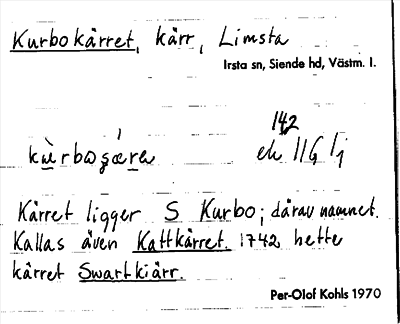 Kurbokärret, kärr, Limsta
Irsta sn, Siende hd, Västm. l.
142
Kärret ligger S Kurbo; därav namnet.
Kallas även Kattkärret. 1742 hette
kärret Swartkiärr.
Per-Olof Kohls 1970